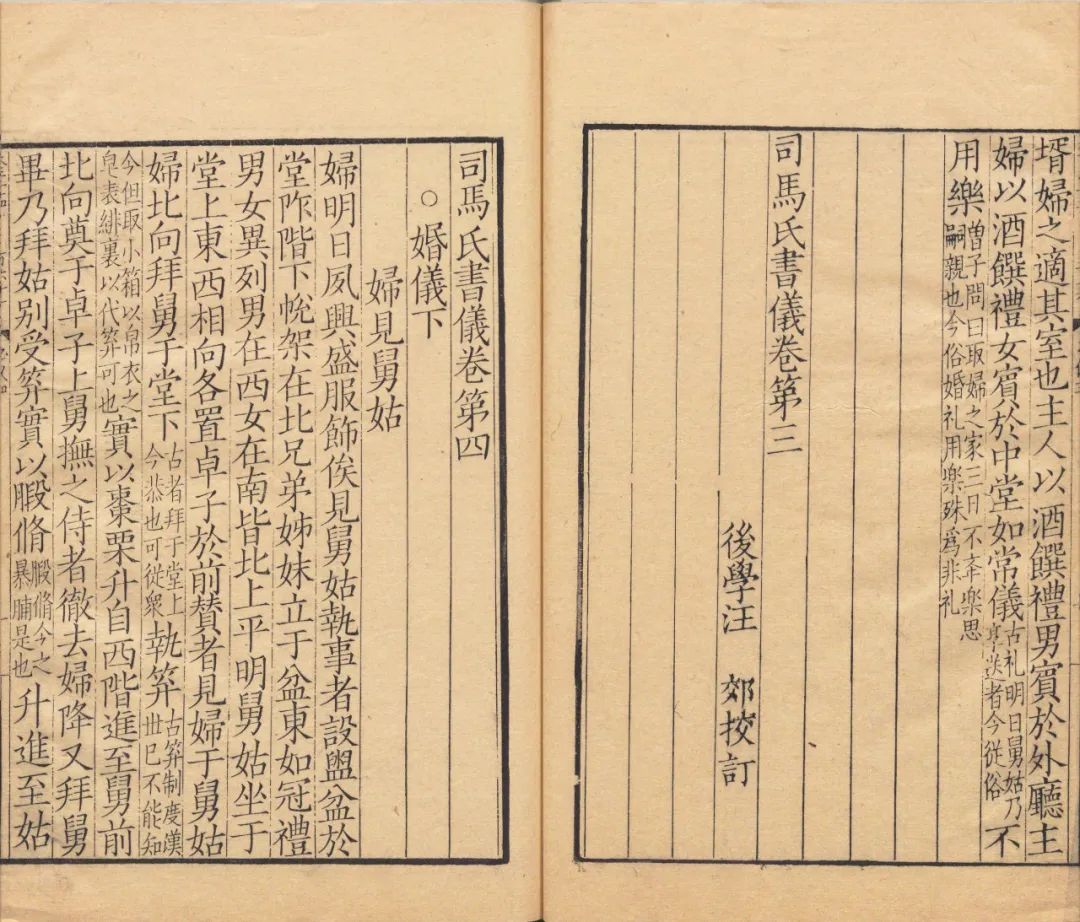 壻婦之適其室也主人以酒饌禮男賓於外廳主
婦以酒饌禮女賓於中堂如常儀古礼明日舅姑乃享送者今從俗不
用樂曽子問曰取婦之家三日不舉樂思嗣親也今俗婚礼用樂殊爲非礼
司馬氏書儀卷第三
後學汪 郊挍訂
司馬氏書儀卷第四
○婚儀下
婦見舅姑
婦明日夙興盛服飾俟見舅姑執事者設盥盆於
堂阼階下帨架在北兄弟姊妹立于盆東如冠禮
男女異列男在西女在南皆北上平明舅姑坐于
堂上東西相向各置卓子於前賛者見婦于舅姑
婦北向拜舅于堂下古者拜于堂上今恭也可從衆執笲古笲制度漢世已不能知
今但取小箱以帛衣之皂表緋裏以代笲可也實以棗栗升自西階進至舅前
北向奠于卓子上舅撫之侍者徹去婦降又拜舅
畢乃拜姑别受笲實以腶脩腶脩今之暴脯是也升進至姑